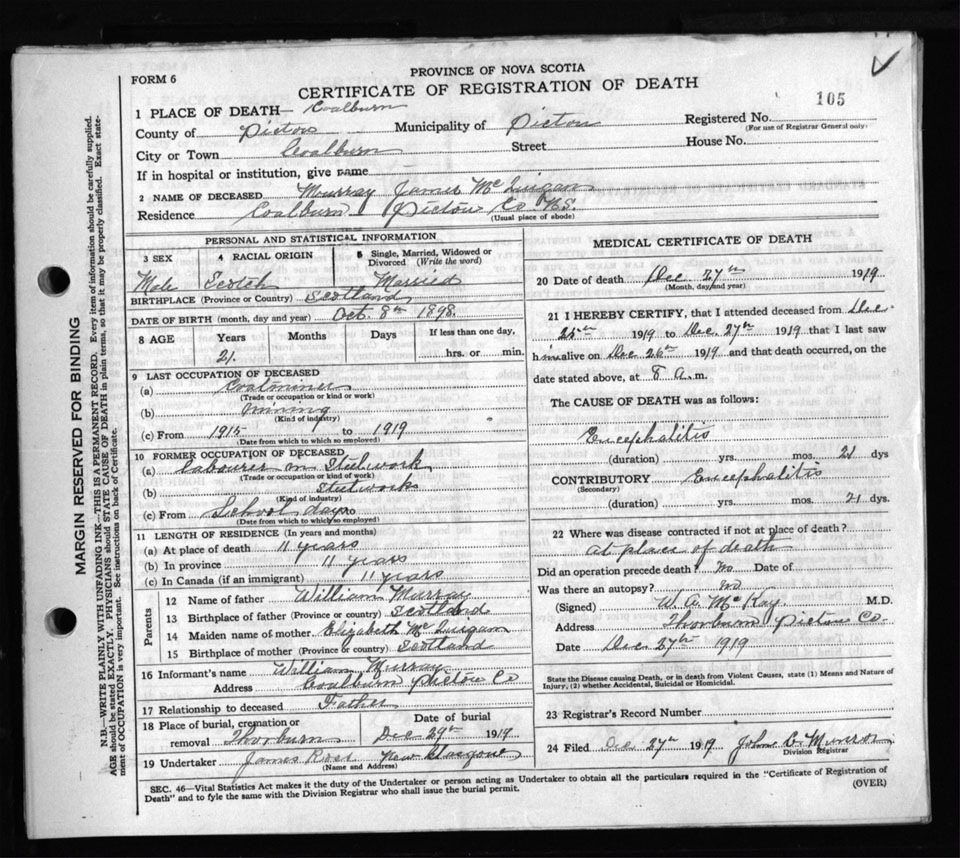 PROVINCE OF NOVA SCOTIA
FORM 6
CERTIFICATE OF REGISTRATION OF DEATH
105
1 PLACE OF DEATH— Coalburn
County of Pictou Municipality of Pictou Registered No.
(For use of Registrar General only)
City or Town Coalburn Street House No.
If in hospital or institution, give name
2 NAME OF DECEASED Murray James McGuigan
Residence Coalburn Pictou Co N.S.
(Usual place of abode)
MARGIN RESERVED FOR BINDING
N.B.—WRITE PLAINLY WITH UNFADING INK—THIS IS A PERMANENT RECORD. Every item of information should be carefully supplied.
AGE should be stated EXACTLY. PHYSICIANS should STATE CAUSE OF DEATH in plain terms, so that it may be properly classified. Exact state-
ment of OCCUPATION is very important. See instructions on back of Certificate.
PERSONAL AND STATISTICAL INFORMATION
3 SEX 4 RACIAL ORIGIN 5 Single, Married, Widowed or
Divorced (Write the word)
Male Scotch Married
BIRTHPLACE (Province or Country) Scotland
DATE OF BIRTH (month, day and year) Oct. 8th 1898.
8 AGE Years Months Days If less than one day,
21. hrs. or min.
9 LAST OCCUPATION OF DECEASED
(a) Coalminer
(Trade or occupation or kind or work)
(b) mining
(Kind of industry)
(c) From 1915 to 1919
(Date from which to which so employed)
10 FORMER OCCUPATION OF DECEASED
(a) Labourer on Steelwork
(Trade or occupation or kind of work)
(b) Steelworks
(Kind of industry)
(c) From School days to
(Date from which to which so employed)
11 LENGTH OF RESIDENCE (In years and months)
(a) At place of death 11 years
(b) In province 11 years
(c) In Canada (if an immigrant) 11 years
Parents
12 Name of father William Murray
13 Birthplace of father (Province or country) Scotland
14 Maiden name of mother Elizabeth McGuigan
15 Birthplace of mother (Province or country) Scotland
16 Informant's name William Murray
Address Coalburn Pictou Co
17 Relationship to deceased Father
18 Place of burial, cremation or
removal Thorburn
Date of burial
Dec 29th 1919
19 Undertaker James Ross New Glasgow
(Name and Address)
MEDICAL CERTIFICATE OF DEATH
20 Date of death Dec 27th 1919
(Month, day and year)
21 I HEREBY CERTIFY, that I attended deceased from Dec
25th 1919 to Dec. 27th 1919 that I last saw
him alive on Dec 26th 1919 and that death occurred, on the
date stated above, at 8 A.m.
The CAUSE OF DEATH was as follows:
Encephalitis
(duration) yrs. mos. 21 dys
CONTRIBUTORY Encephalitis
(Secondary)
(duration) yrs. mos. 21 dys.
22 Where was disease contracted if not at place of death?
At place of death
Did an operation precede death? No Date of
Was there an autopsy? No
(Signed) W. A. McKay. M.D.
Address Thorburn Pictou Co.
Date Dec. 27th 1919
State the Disease causing Death, or in death from Violent Causes, state (1) Means and Nature of
Injury, (2) whether Accidental, Suicidal or Homicidal.
23 Registrar's Record Number
24 Filed Dec 27th 1919 John C. Munro
Division Registrar
SEC. 46—Vital Statistics Act makes it the duty of the Undertaker or person acting as Undertaker to obtain all the particulars required in the "Certificate of Registration of
Death" and to fyle the same with the Division Registrar who shall issue the burial permit.
(OVER)